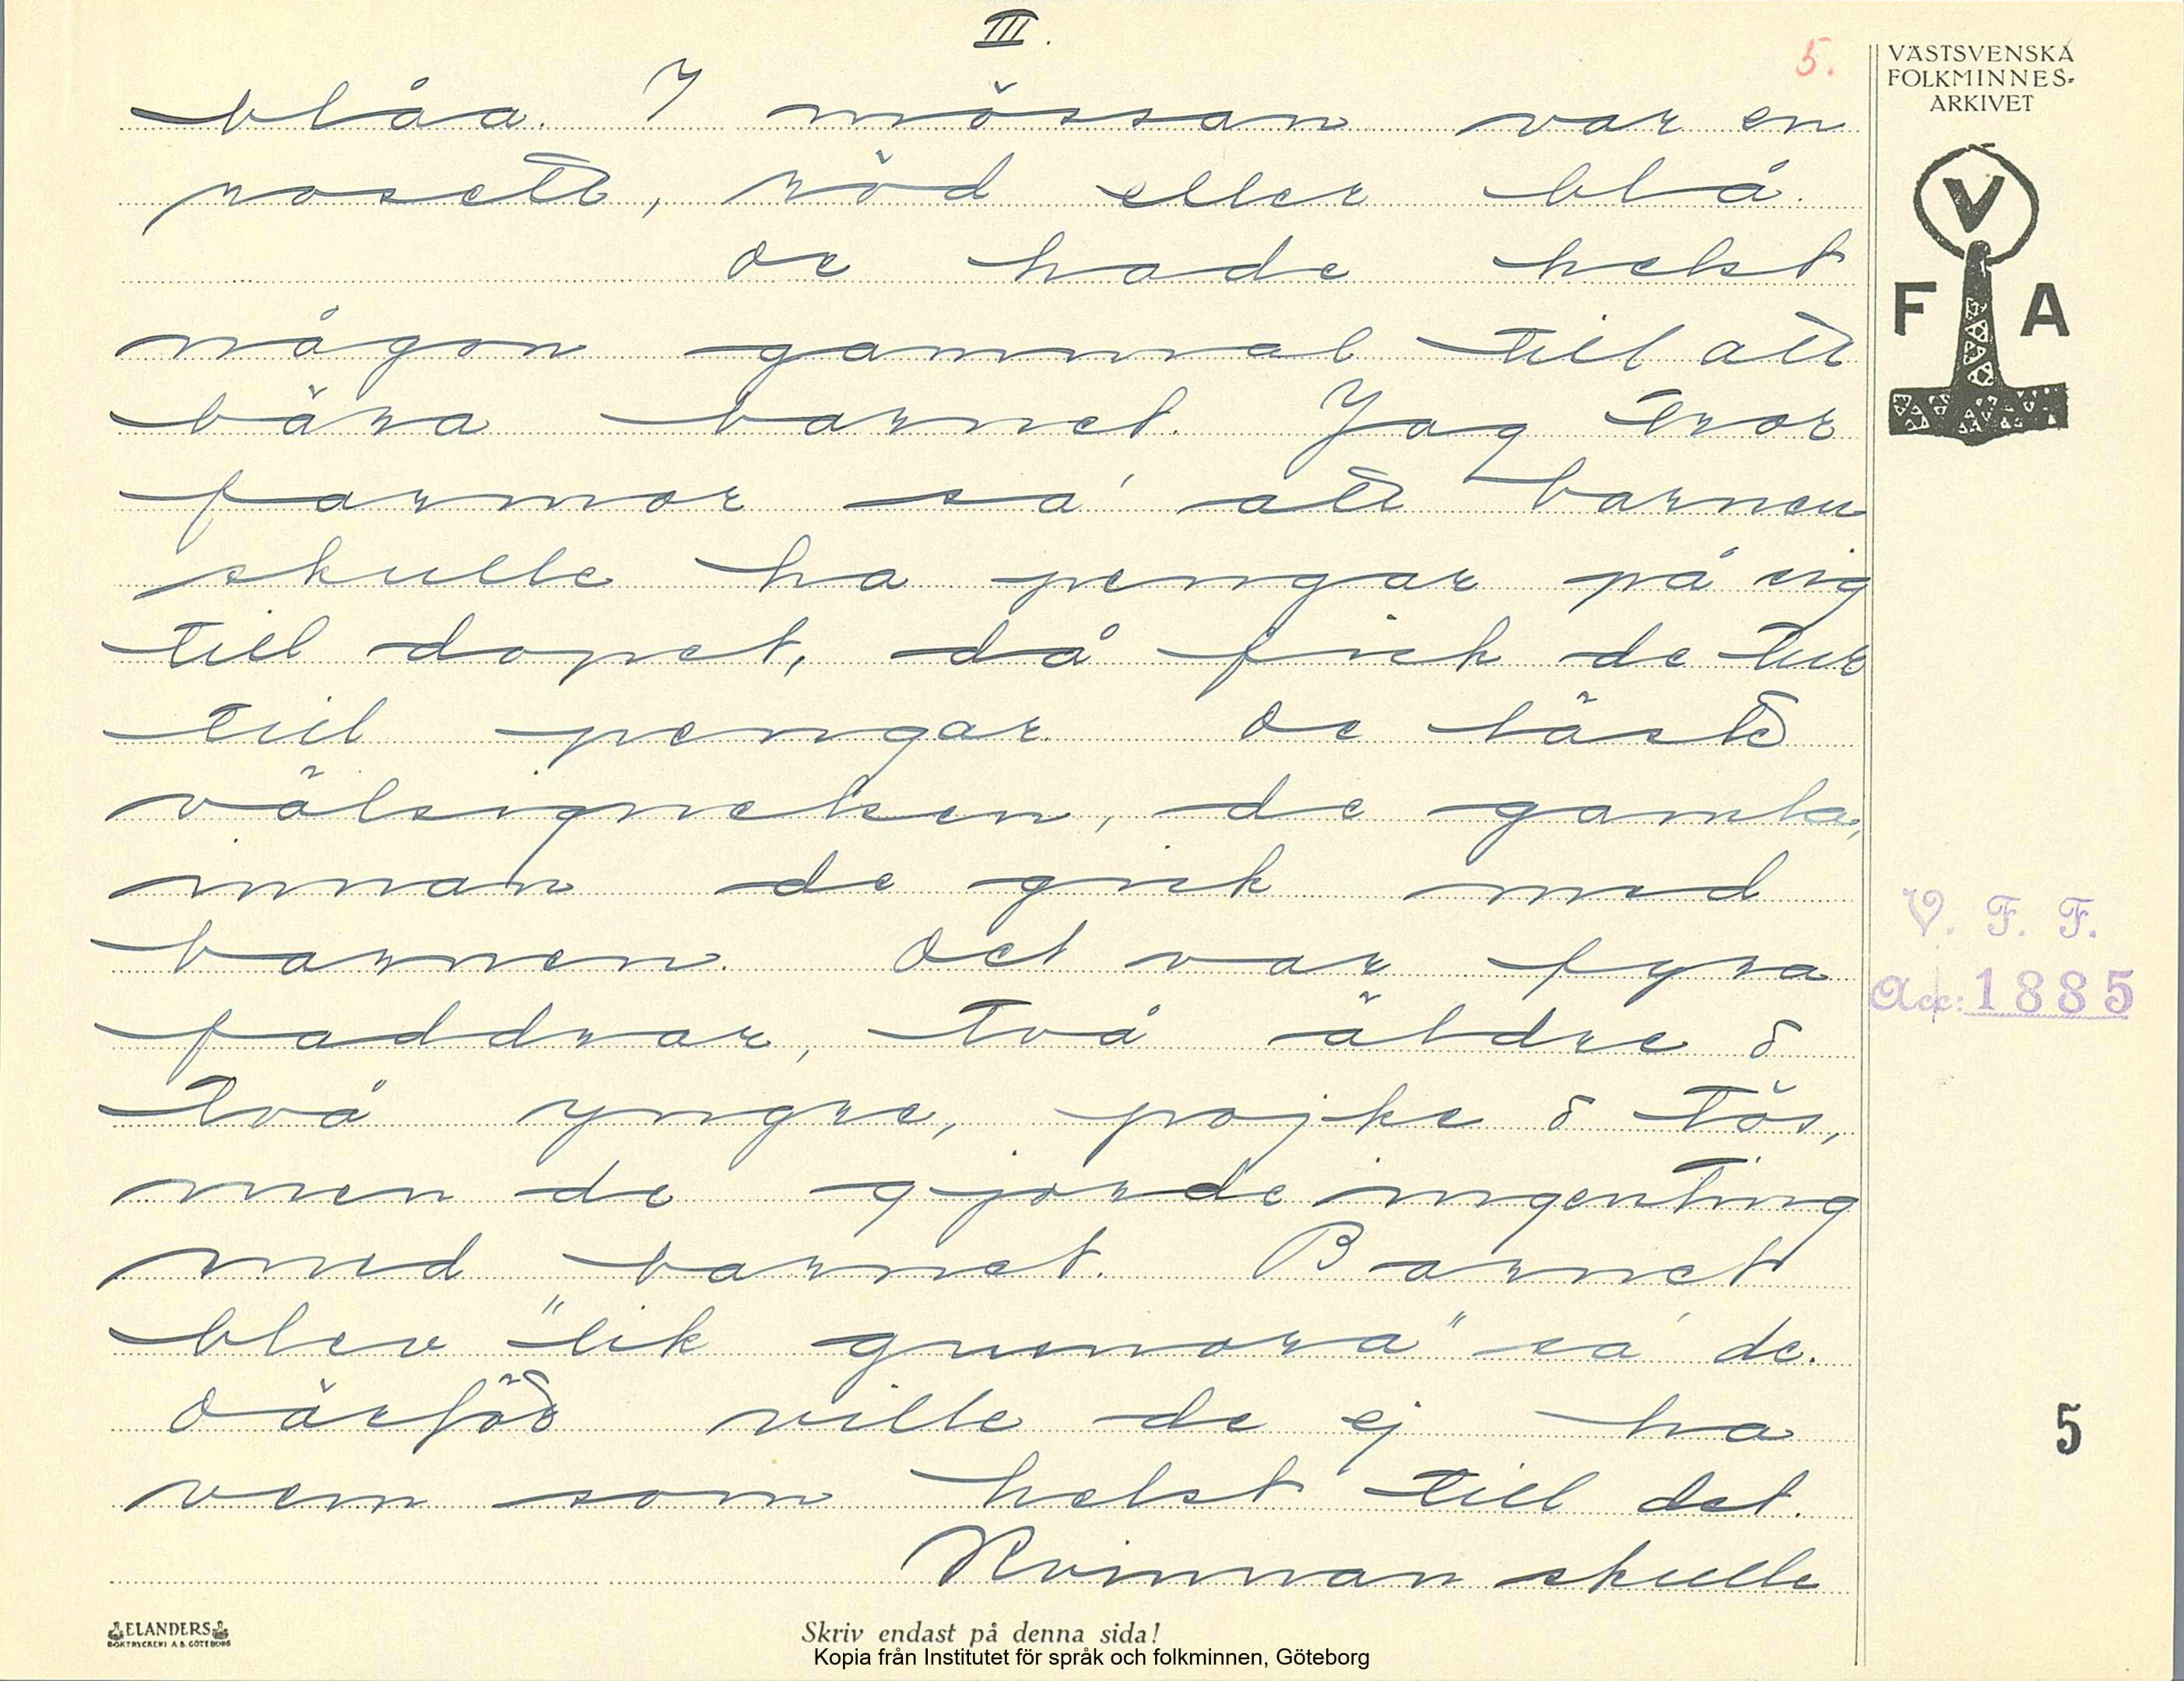 III.
5.
blåa. I mössan var en
rosett, röd eller blå.
De hade helst
någon gammal till att
bära barnet. Jag tror
farmor sa' att barnen
skulle ha pengar på sig
till dopet, då fick de tur
till pengar. De läste
välsignelsen, de gamla,
innan de gick med
barnen. Det var fyra
faddrar, två äldre &
två yngre, pojke & tös,
men de gjorde ingenting
med barnet. Barnet
blev "lik gumora" sa' de.
Därför ville de ej ha
vem som helst till det.
Kvinnan skulle
VÄSTSVENSKA
FOLKMINNES-
ARKIVET
V
F A
V. F. F.
Acc: 1885
5
ELANDERS
BOKTRYCKERI A.B. GÖTEBORG
Skriv endast på denna sida!
Kopia från Institutet för språk och folkminnen, Göteborg